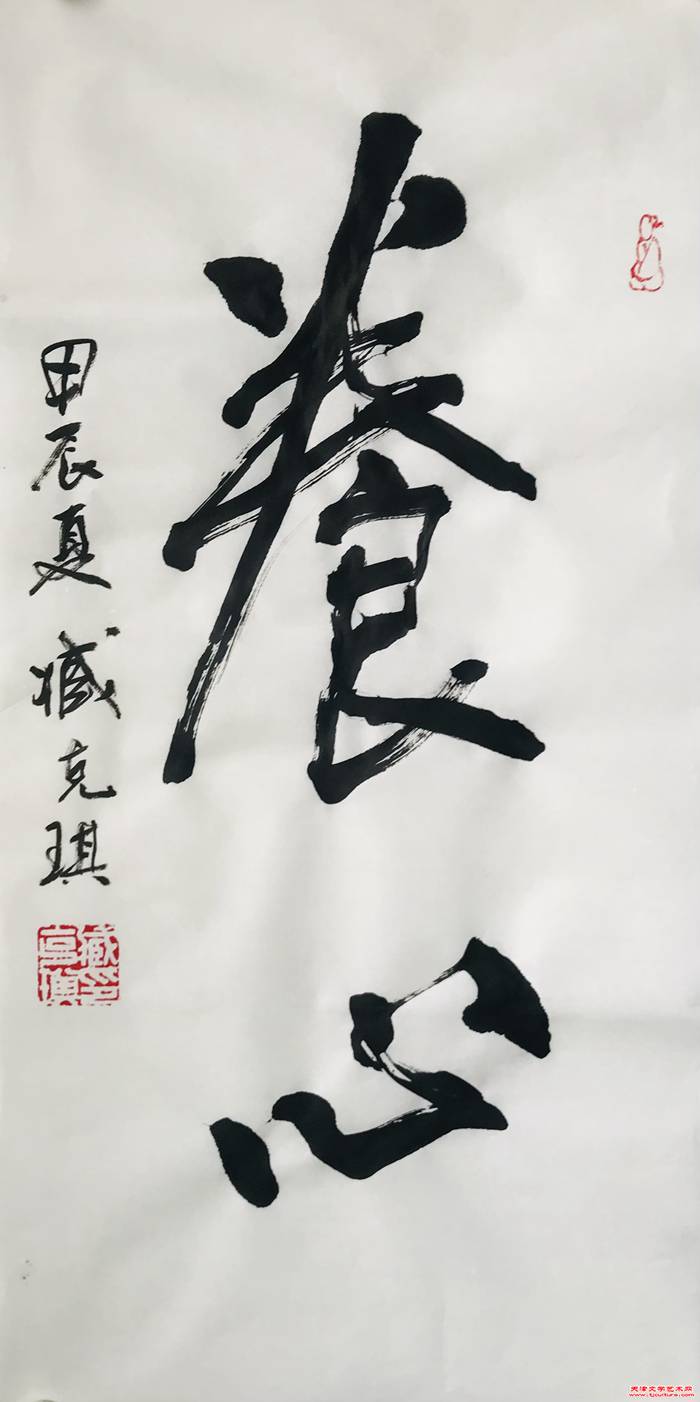 養心
甲辰夏 臧克琪
天津文学艺术网
www.tjculture.com